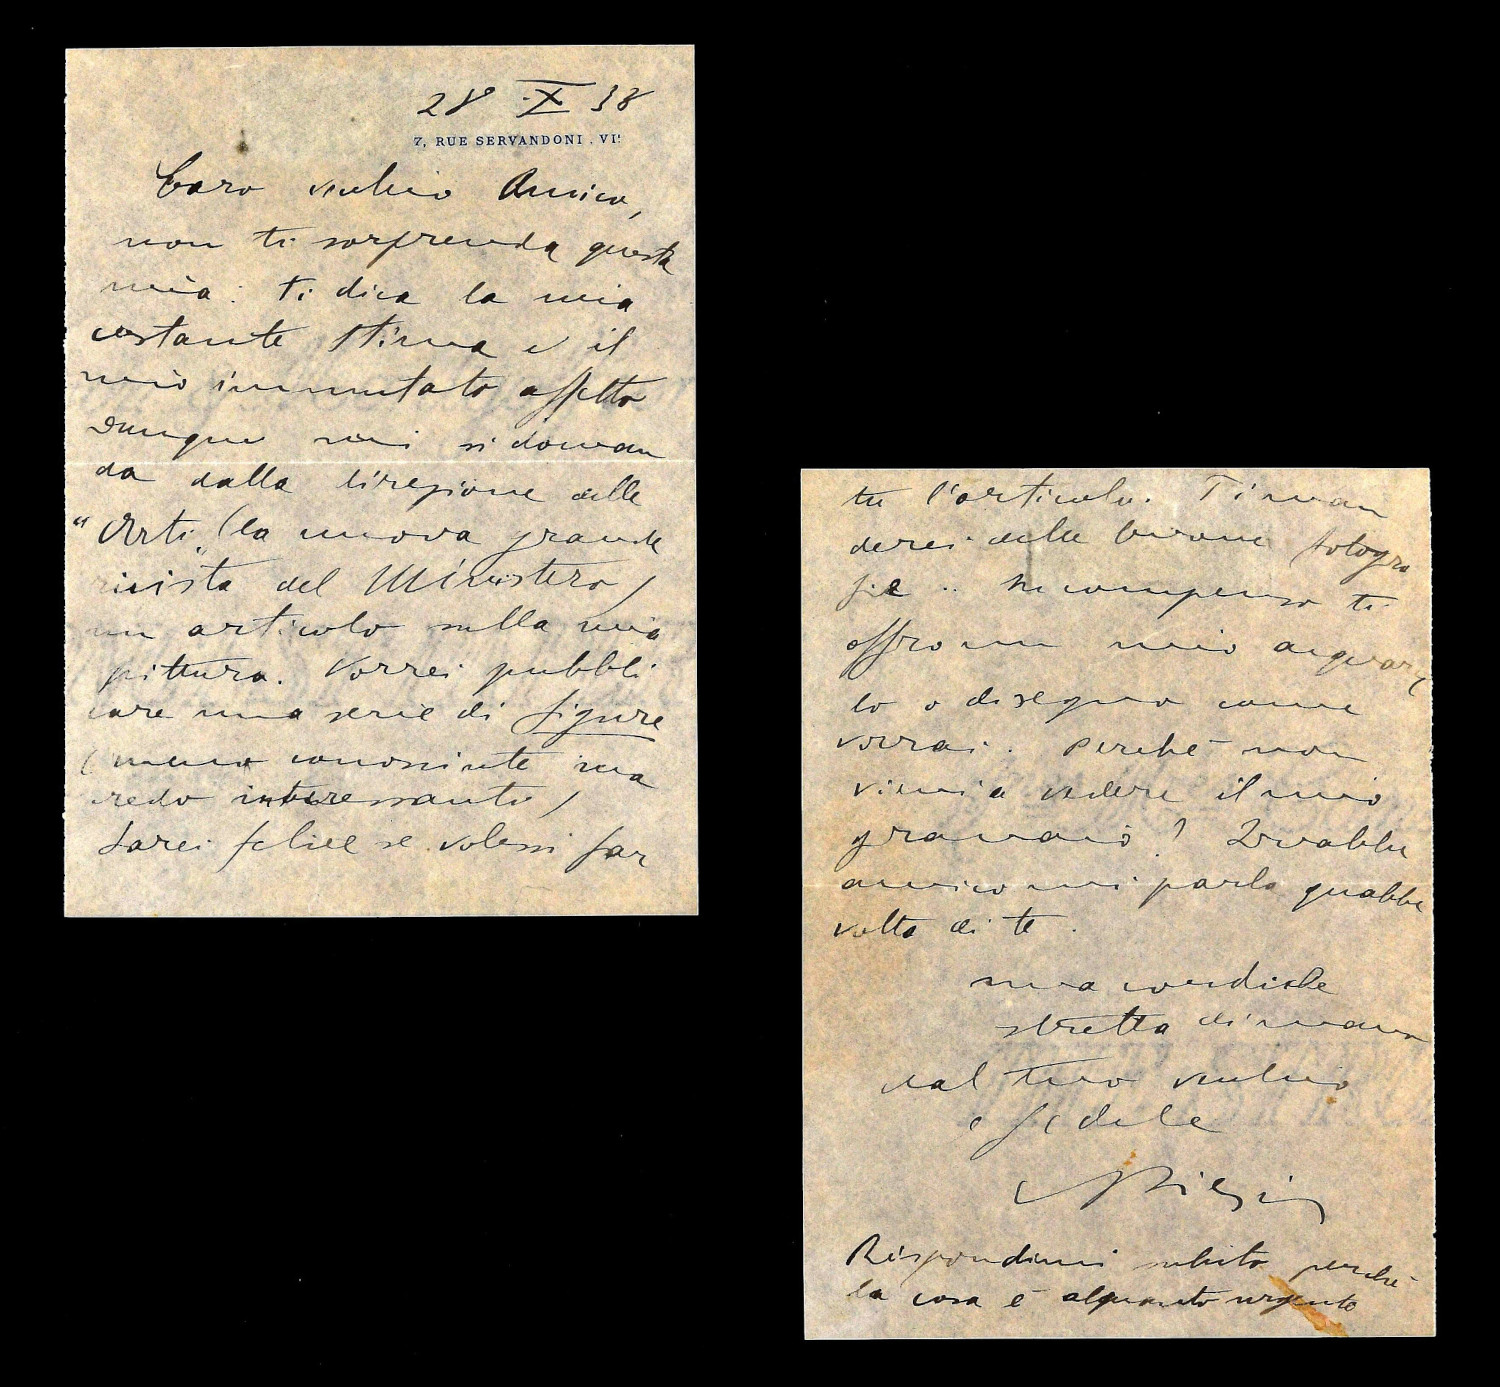 28 X 38
7, RUE SERVANDONI . VIe
Caro vecchio Amico,
non ti sorprenda questa
mia: ti dica la mia
costante stima e il
mio immutato affetto
Dunque mi si doman
da dalla Direzione delle
"Arti" (la nuova grande
rivista del Ministero)
un articolo sulla mia
pittura. Vorrei pubbli
care una serie di figure
(meno conosciute ma
credo interessanti)
Sarei felice se volessi far
tu l'articolo. Ti man
derei delle buone fotogra
fie .. In compenso ti
offro un mio acquarel
lo o disegno come
vorrai. Perché non
vieni a vedere il mio
granaio? Qualche
amico mi parla qualche
volta di te.
una cordiale
stretta di mano
dal tuo vecchio
e fedele
Rispondimi subito perché
la cosa è alquanto urgente